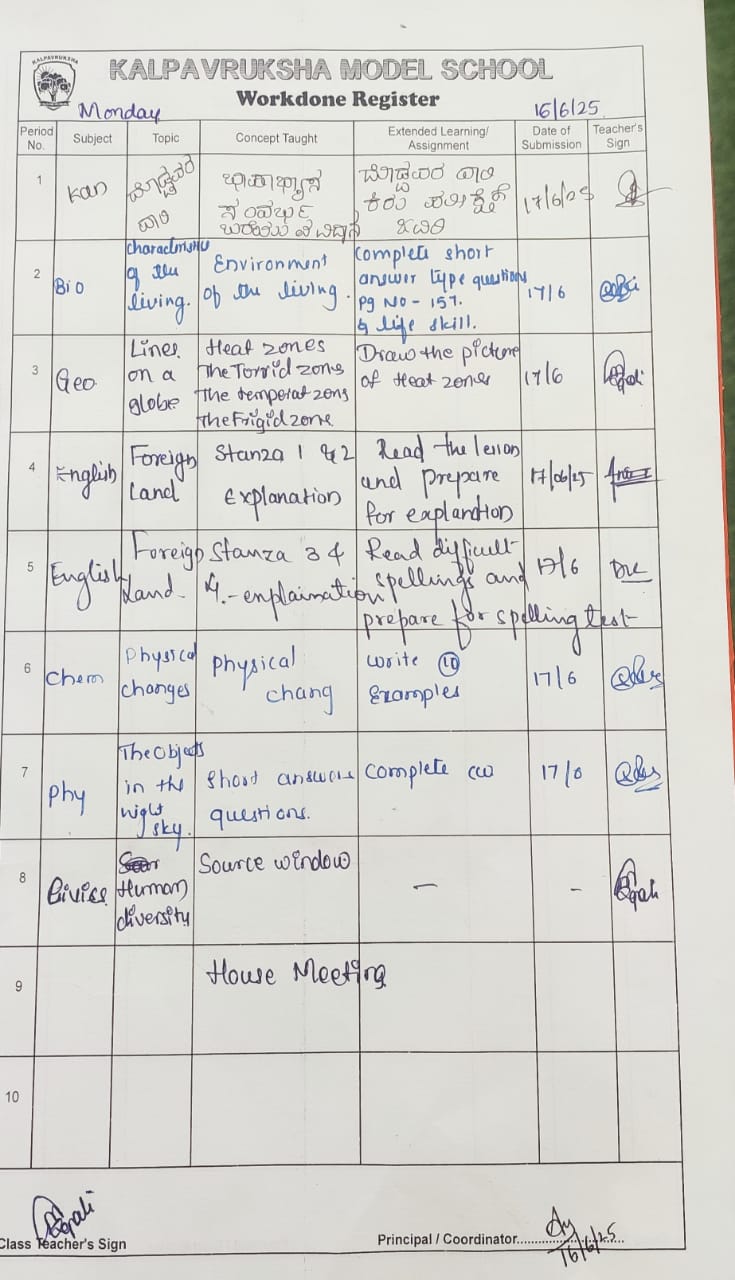 KALPAVRUKSHA
KALPAVRUKSHA MODEL SCHOOL
Workdone Register
Monday 16/6/25.
Period No. Subject Topic Concept Taught Extended Learning/ Assignment Date of Submission Teacher's Sign
1 Kan ದೊಡ್ಡವರ ದಾರಿ ಭಾಷಾಭ್ಯಾಸ ಸಂದರ್ಭ ಬರೆಯುವ ವಿಧಾನ ದೊಡ್ಡವರ ದಾರಿ ಕಿರು ಪರೀಕ್ಷೆಗೆ 17/6/25
2 Bio of the living. Environment of the living. Complete short answer type questions pg No - 157. & life skill. 17/6
3 Geo Lines on a globe Heat zones The Torrid zone The temperat zone The Frigid zone Draw the picture of Heat zones 17/6
4 English Foreign Land Stanza 1 & 2 Explanation Read the lesson and prepare for explantion 17/06/25
5 English Foreign Land Stanza 3 & 4. - enplaimation Read difficult spellings and prepare for spelling test 17/6
6 Chem Physical changes Physical chang Write 10 Examples 17/6
7 Phy The Objects in the night sky. Short answers questions. Complete cw 17/6
8 Civics Human diversity Source window — -
9 House Meeting
10
Class Teacher's Sign Principal / Coordinator 16/6/25